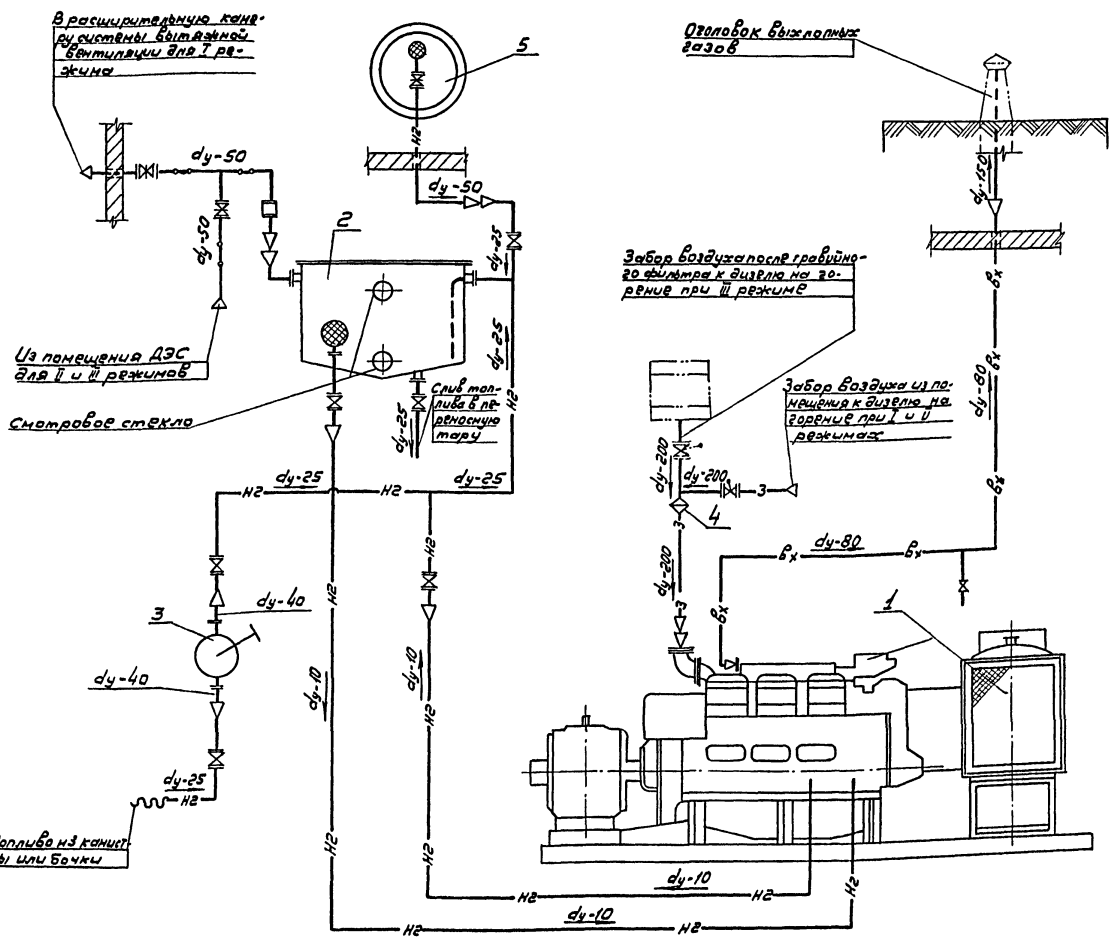 В расширительную каме-
ру системы вытяжной
вентиляции для I ре-
жима
5
Оголовок выхлопных
газов
dy-50
Н2
dy-50
dy-50
2
dy-25
dy-150
Забор воздуха после гравийно-
го фильтра к дизелю на го-
рение при III режиме
Вх
Из помещения ДЭС
для II и III режимов
dy-25
Н2
Вх
dy-80
Смотровое стекло
Слив топ-
лива в пе-
реносную
тару
dy-25
Забор воздуха из по-
мещения к дизелю на
горение при I и II
режимах
dy-200
dy-200
З
4
З
dy-25
Н2
Н2
dy-25
Вх
Н2
Н2
dy-200
З
Вх
dy-80
Вх
Вх
1
3
dy-40
dy-40
dy-10
dy-10
Н2
dy-25
Н2
Н2
опливо из канист
ы или бочки
Н2
dy-10
Н2
Н2
Н2
dy-10
Н2